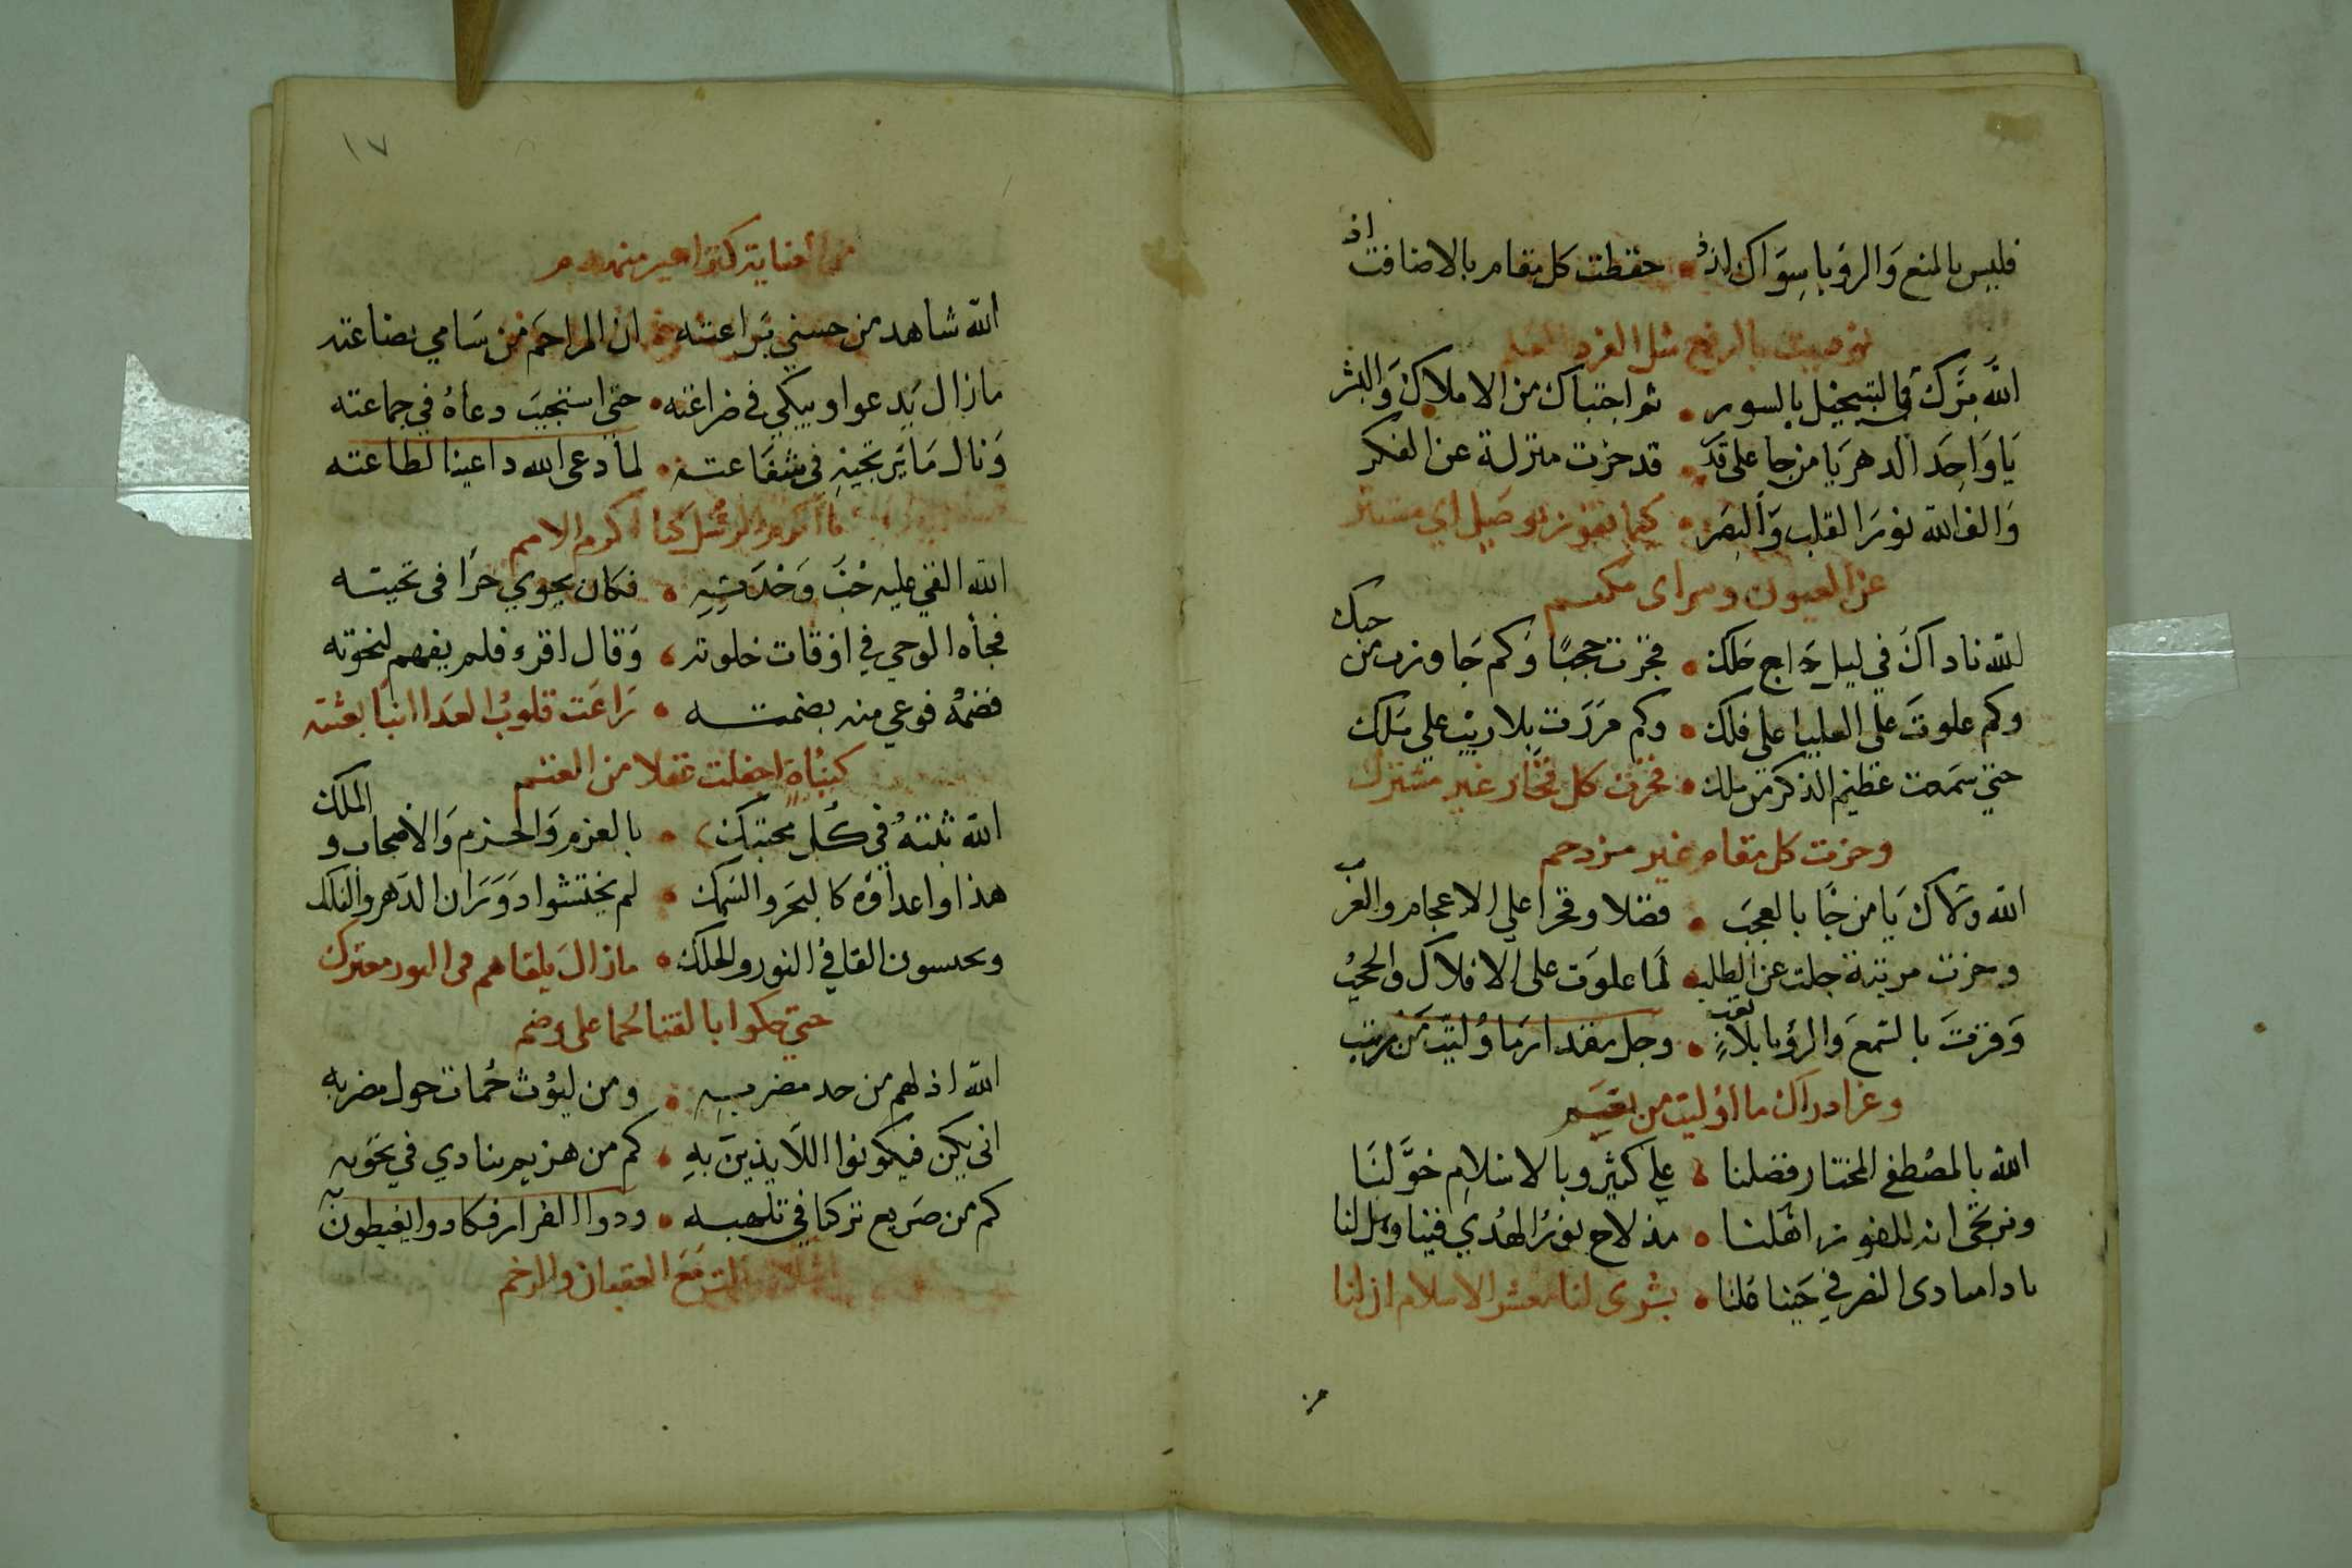 فليس بالمنع والرؤيا سِوَاك اذ • حفظت كل مقام بالاضافت اذ
نوديت بالرفع مثل المفرد العلم
الله بَرَّك في التبجيل بالسور • ثم اجتباك من الاملاك وَالبشر
يَا وَاحِدَ الدهر يَا من جا على قدَر • قد حزت منزلة عن الفكر
وَالف الله نورَ القلب وَالبصَر • كيما تفوز بوصلٍ اي مستتر
عن العيون وسر اى مكتتم
لله ناداك في ليل دَاج حَلك • فجزت حجبًا وَكم جَاوزت من حبك
وكم علوتَ على العليا على فلك • وكم مرَرَت بلا ريْب علي مَلك
حتي سَمعت عَظيم الذكر من ملك • فحزت كل فخار غير مشترك
وحزت كل مقام غير مزدحم
الله وَلاك يَا من جَا بالعجبَ • فضلا وفخرا علي الاعجام والعرب
وحزت مرتبة جلت عن الطلب • لَما علوَت على الافلاك والحجُب
وَفزتَ بالسَمعَ وَالرؤيا بلا تعَب • وجل مقدار مَا وُليّتَ مَن مرتب
وعز ادراك ما اوُليت من نعَم
الله بالمصُطفى المختار فضلنا • علي كثير وبالاسْلامِ خوَّلنَا
ونرتجى انه للفوز اهَّلنا • مذ لاح نورُ الهُدي فينا وسَلنا
نادا منادى النصر في حَينا عَلنا • بشرى لنا معشر الاسلام ان لنا
من
١٧
من العناية ركنا غير منهدم
الله شاهد من حسنى بَراعته • ان المراحمَ من سَامي بضاعته
مازال يَدعوا ويبكي في ضراعته • حتى استجيبَ دعاهُ في جماعته
وَنال مَا يَرتجيهِ في شفَاعته • لما دعى الله داعينا لطاعته
باكرم الرسُل كنا اكرم الامم
الله القي عليه حُبَّ وَحْدَتِهِ • فكان يحوي حرَا في تحيته
فجاْه الوحي في اوقات خلوته • وَقال اقرء فلم يفهم لنخوته
فضمهُ فوعي منه بضمته • رَاعَت قلوبُ العدَا انبَا بعثته
كنبْاةٍ اجفلت غفلا من الغنم
الله ثبتهُ في كل محتبك • بالعزم وَالحزم وَالاصحاب و الملك
هذا واعداؤه كالبحَر والسَمك • لم يختشوا دَوَرَان الدَهر والفلك
ويحسبون القا في النور والحلك • مازالَ يلقاهم في كل معترك
حتي حكوا بالقنا لحما على وضم
الله اذلهم من حد مضربهِ • ومن ليُوث حُمات حول مضربه
انى يكن فيكونوا اللَّايذينَ بهِ • كم من هزيم ينادي في تحَوبه
كم من صَريع تركنا في تلهبه • ودوا الفرار فكادوا يغبطون به
اشلاء شالت مَعَ العقبان والرخم